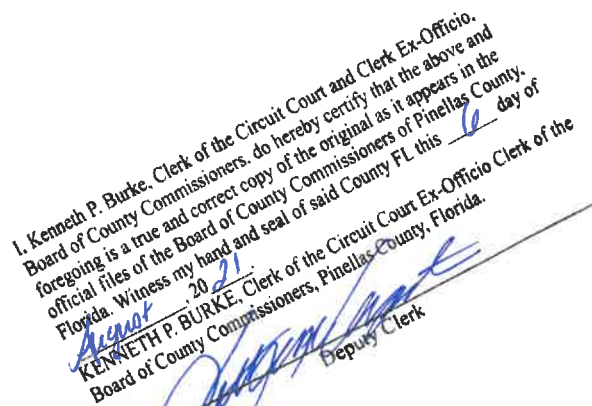 I, Kenneth P. Burke, Clerk of the Circuit Court and Clerk Ex-Officio,
Board of County Commissioners, do hereby certify that the above and
foregoing is a true and correct copy of the original as it appears in the
official files of the Board of County Commissioners of Pinellas County,
Florida. Witness my hand and seal of said County FL this 6 day of
August, 20 21.
KENNETH P. BURKE, Clerk of the Circuit Court Ex-Officio Clerk of the
Board of County Commissioners, Pinellas County, Florida.
Deputy Clerk